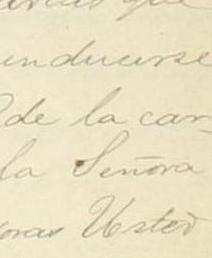 que
inducirse
de la car
la Señora
oras Usted